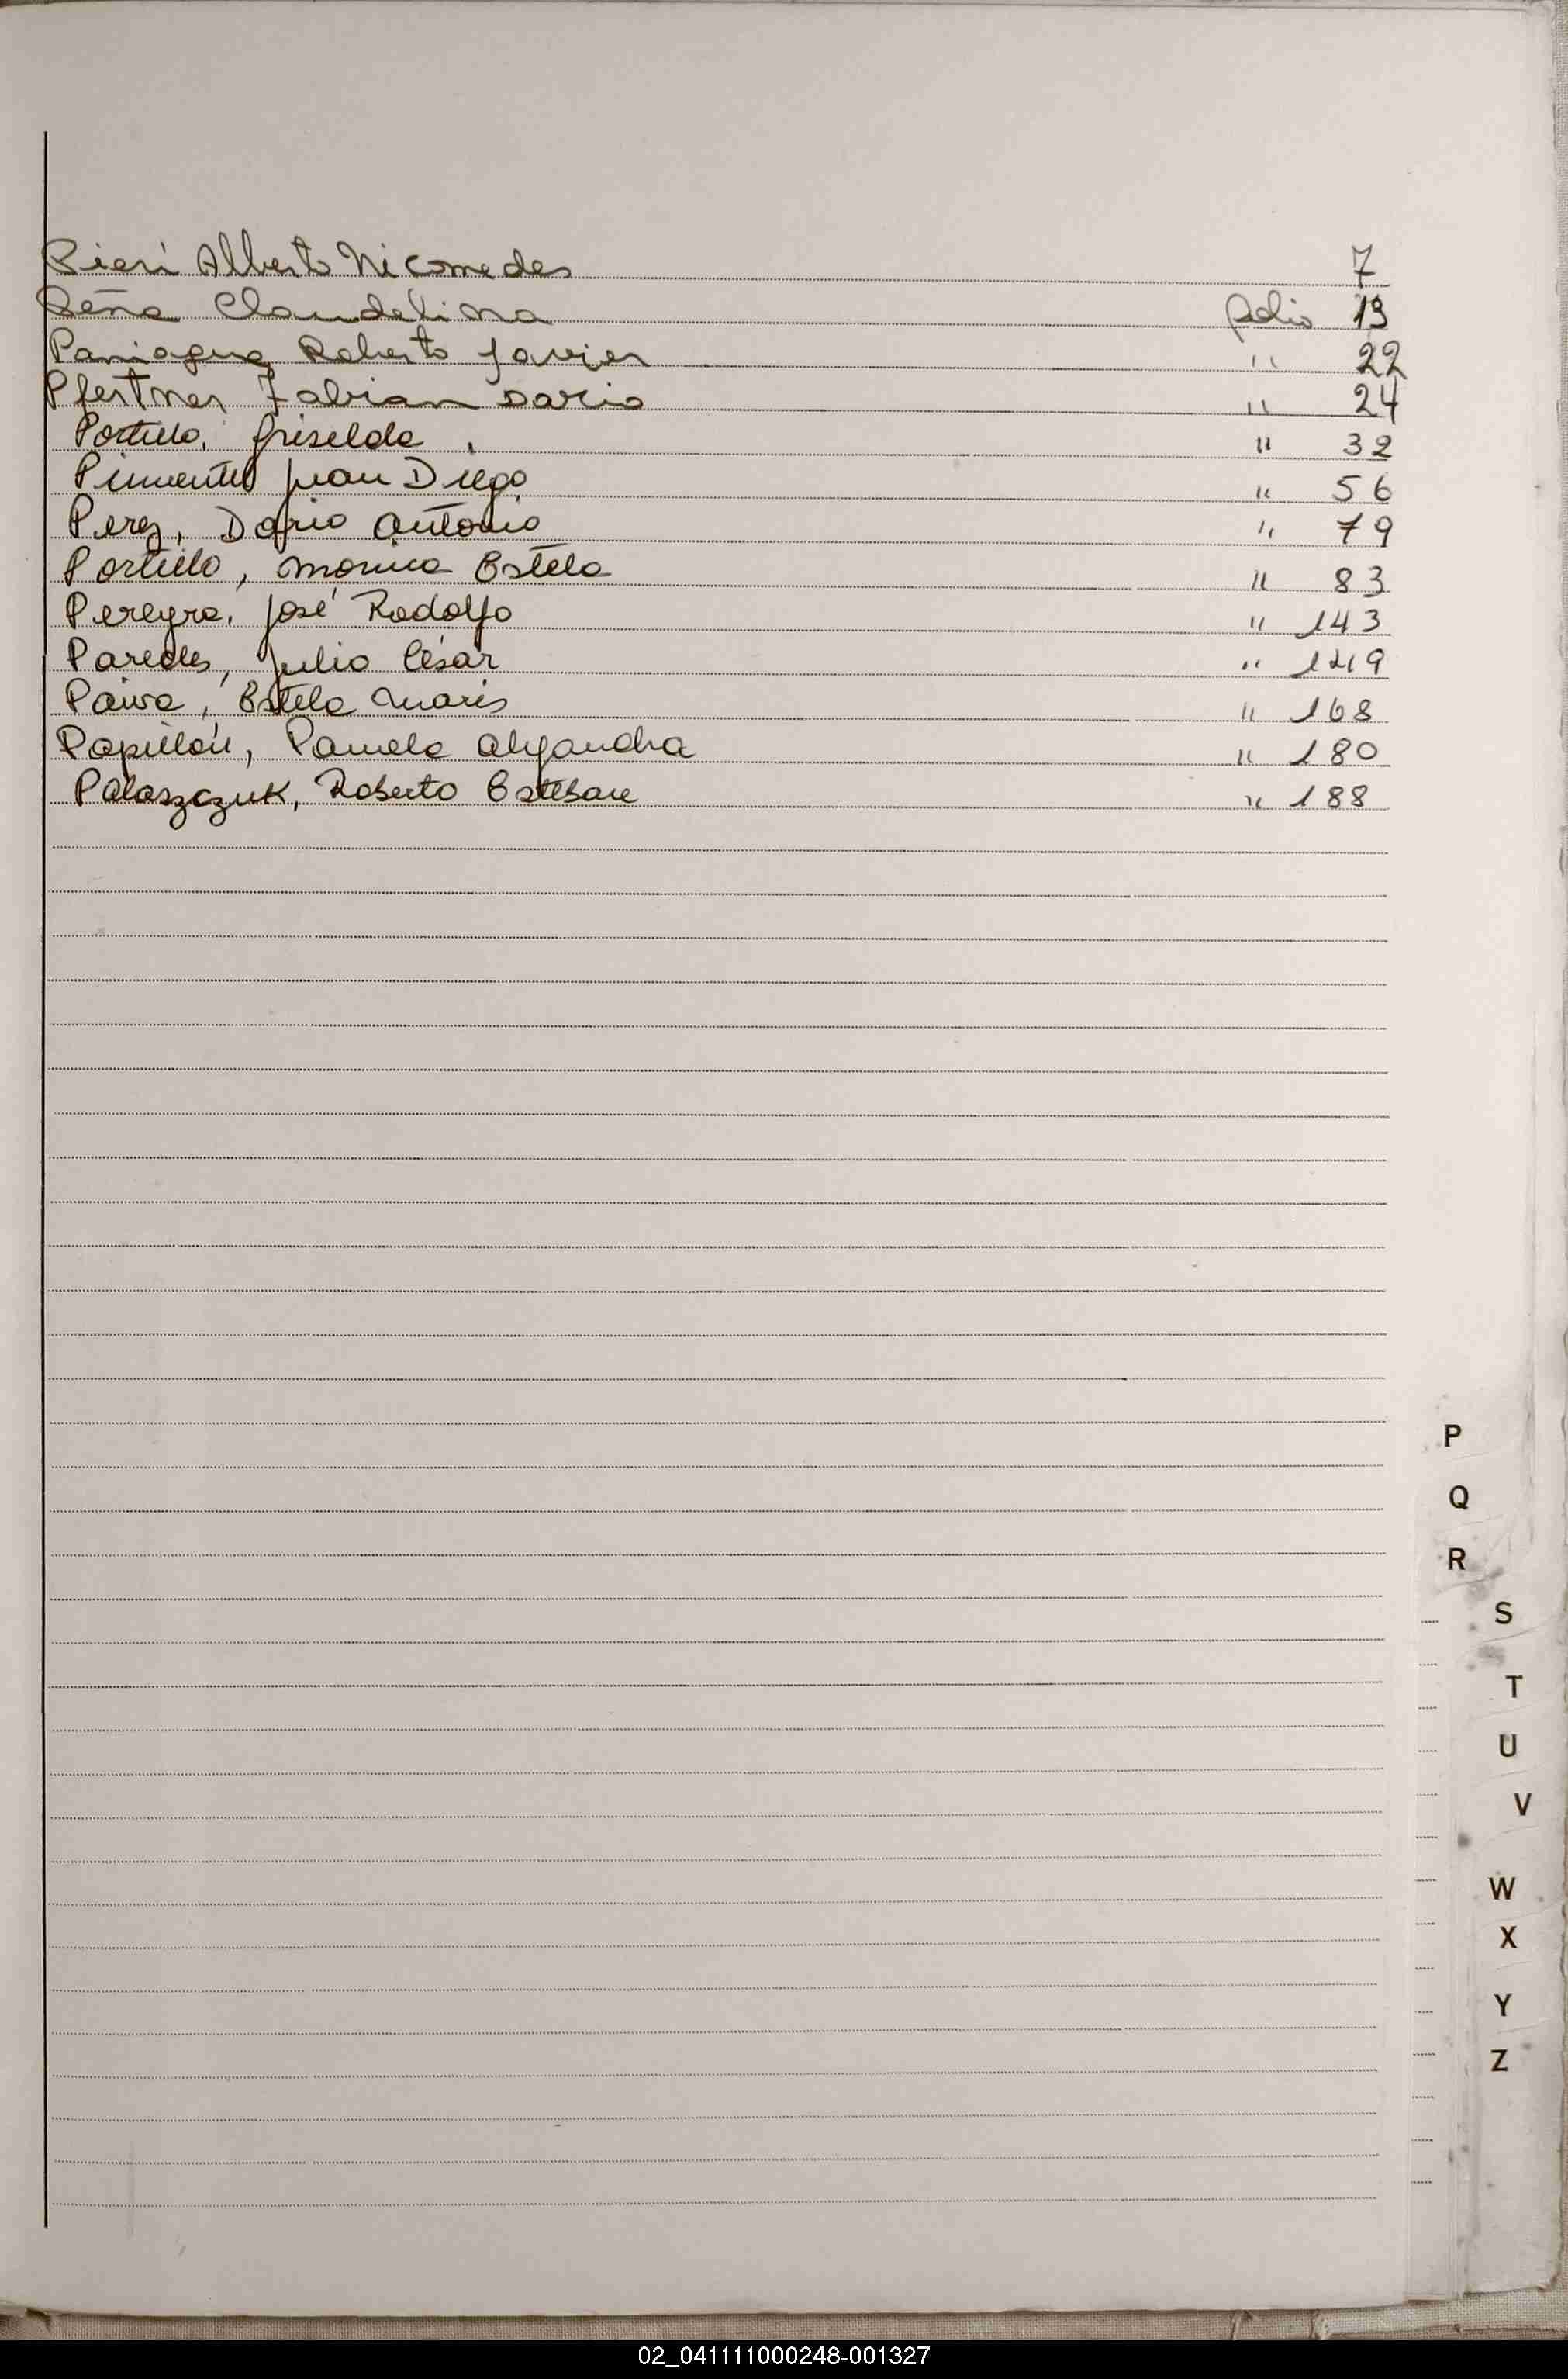 Pieri Alberto Nicomedes 7
Peña Claudelina folio 13
Paniagua Roberto Javier " 22
Pfertner Fabian Dario " 24
Portillo, Griselda. " 32
Pimentel Juan Diego " 56
Perez, Dario Antonio " 79
Portillo, Monica Estela " 83
Pereyra, José Rodolfo " 143
Paredes, Julio César " 149
Paiva, Estela Maris " 168
Papillón, Pamela Alejandra " 180
Palaszczuk, Roberto Esteban " 188
P
Q
R
S
T
U
V
W
X
Y
Z
02_041111000248-001327